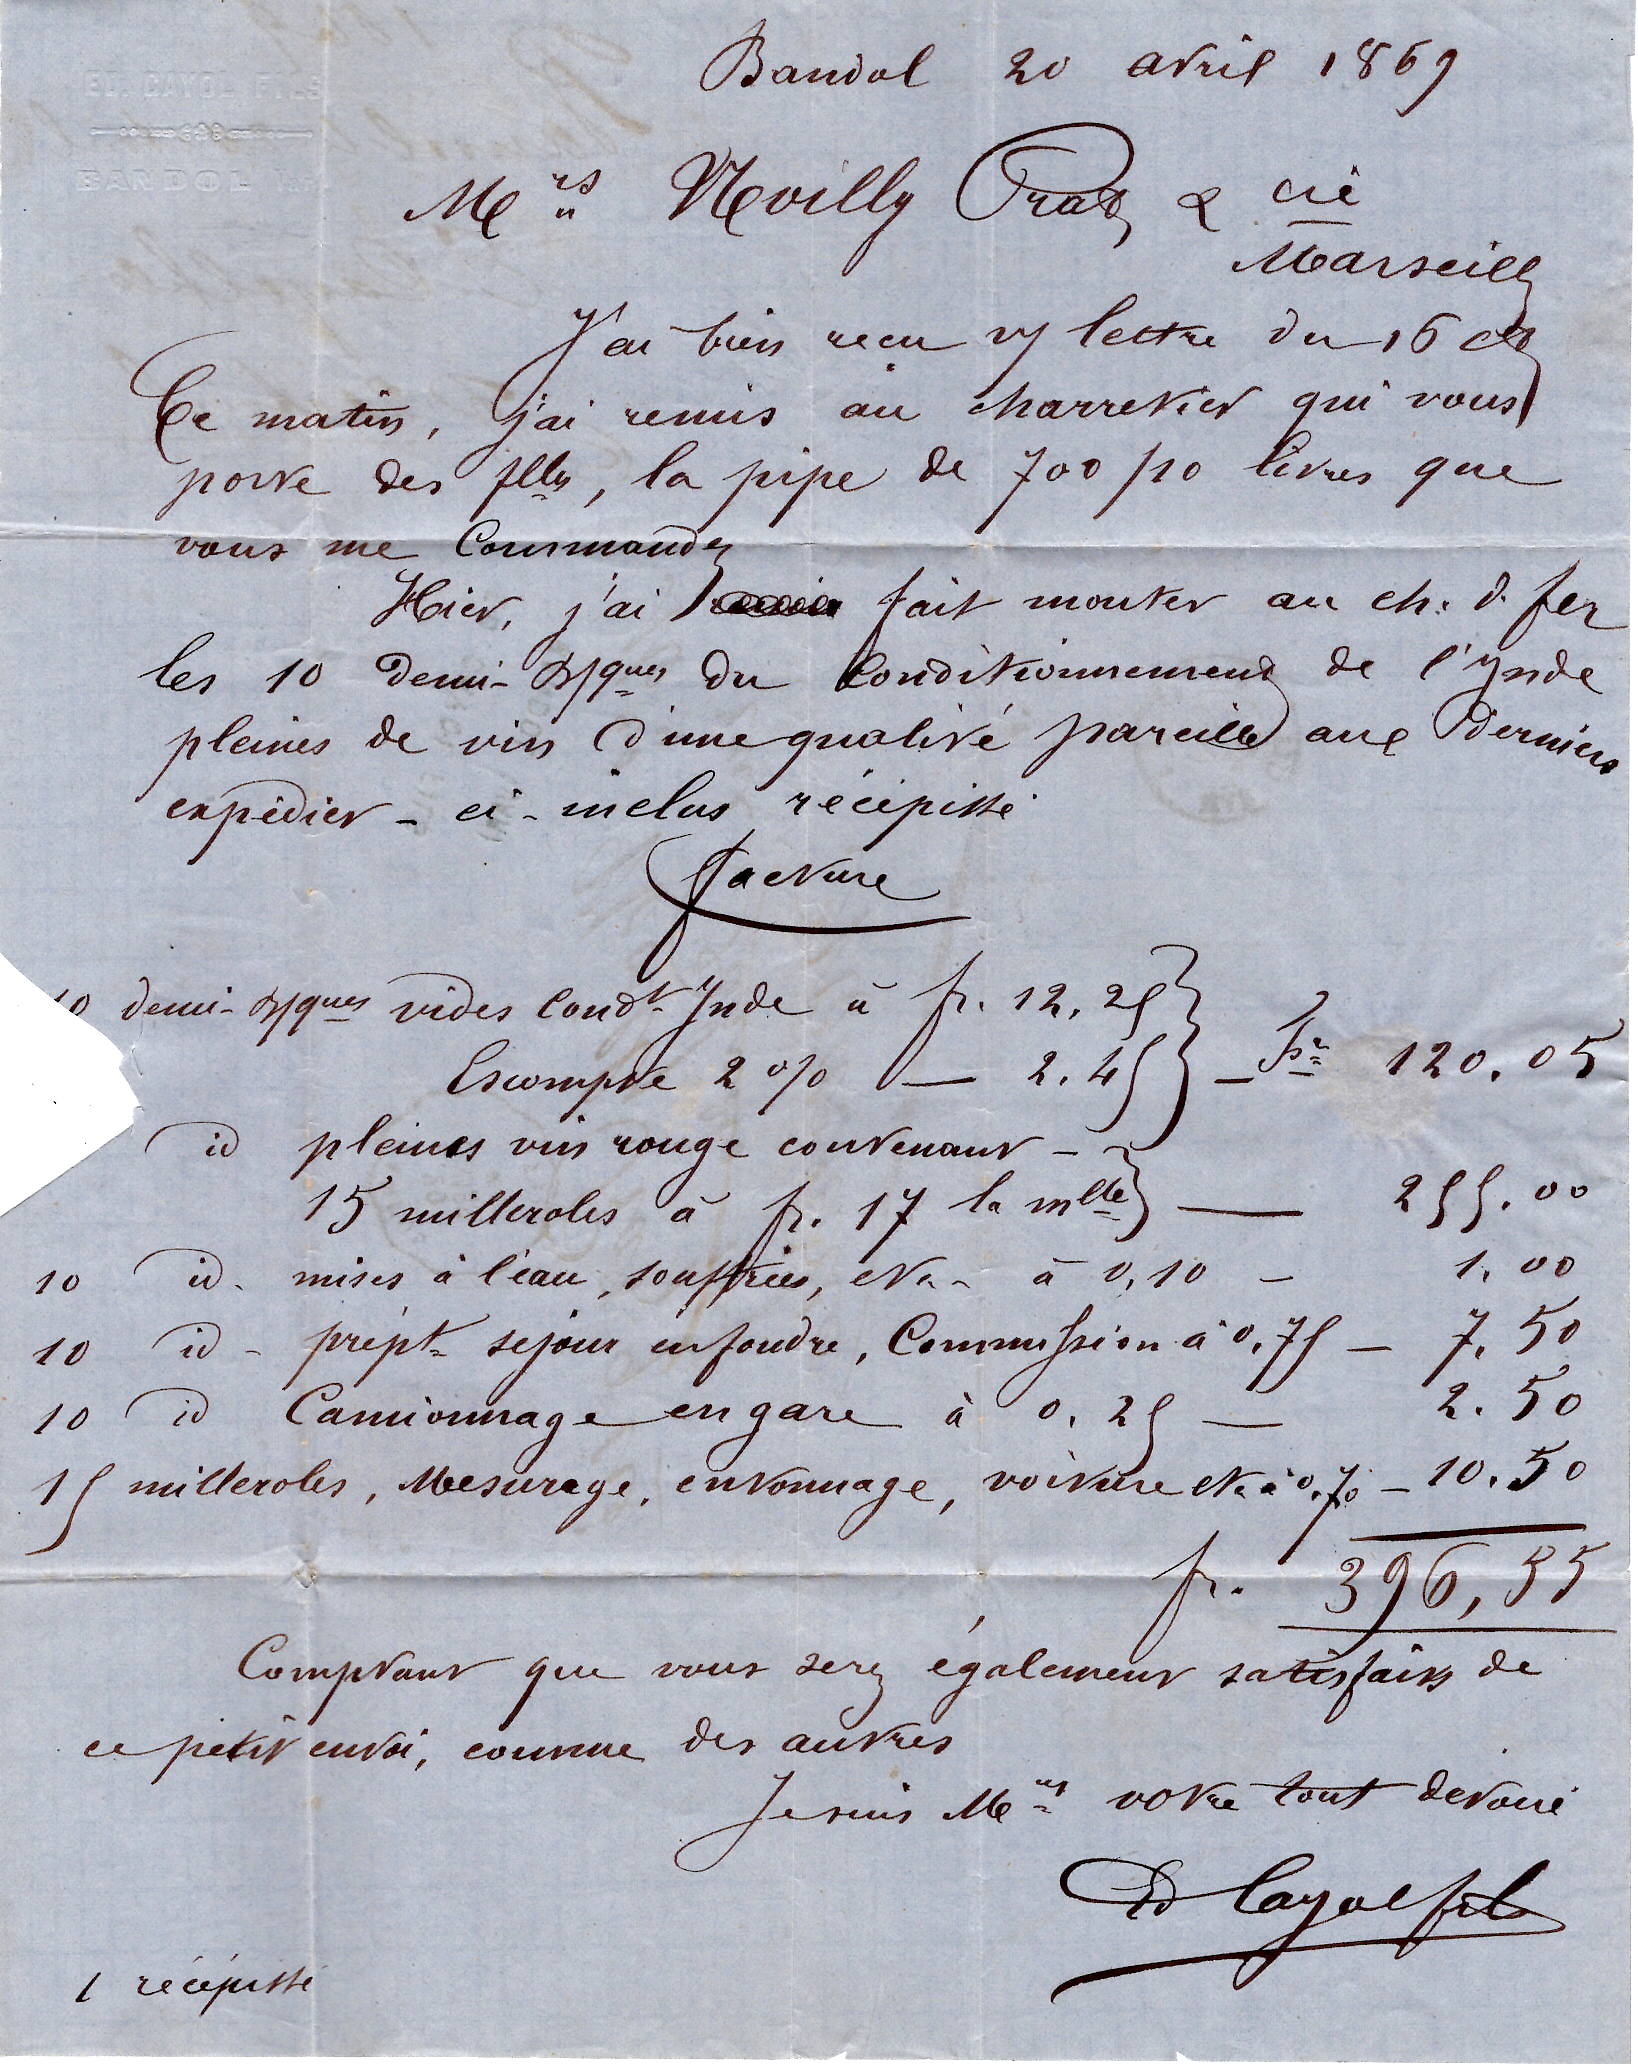 ED. CAYOL FILS
BANDOL
Bandol 20 avril 1869
Mrs Noilly Prat & cie
Marseille
J'ai bien reçu v/ lettre du 16 ct
Ce matin, j'ai remis au charretier qui vous
porte des flles, la pipe de 700/10 litres que
vous me Commandez
Hier, j'ai fait monter au ch. d. fer
les 10 demi-B/ques du Conditionnement de l'Ynde
pleines de vin d'une qualité pareille aux derniers
expédier - ci-inclus récépissé
Facture
10 demi-B/ques vides Condt Ynde à fr. 12,25
Escompte 2 % — 2.45 — Fr 120.05
id pleines vin rouge contenant -
15 milleroles à fr. 17 la mlle — 255.00
10 id - mises à l'eau, souffrées, etc. à 0,10 - 1,00
10 id - prépt séjour en foudre, Commission à 0.75 - 7,50
10 id Camionnage en gare à 0.25 — 2.50
15 milleroles, Mesurage, entonnage, voiture etc à 0,70 - 10.50
fr. 396,55
Comptant que vous serez également satisfaits de
ce petit envoi, comme des autres
Je suis Mrs votre tout dévoué
Ed Cayol fils
1 récépissé